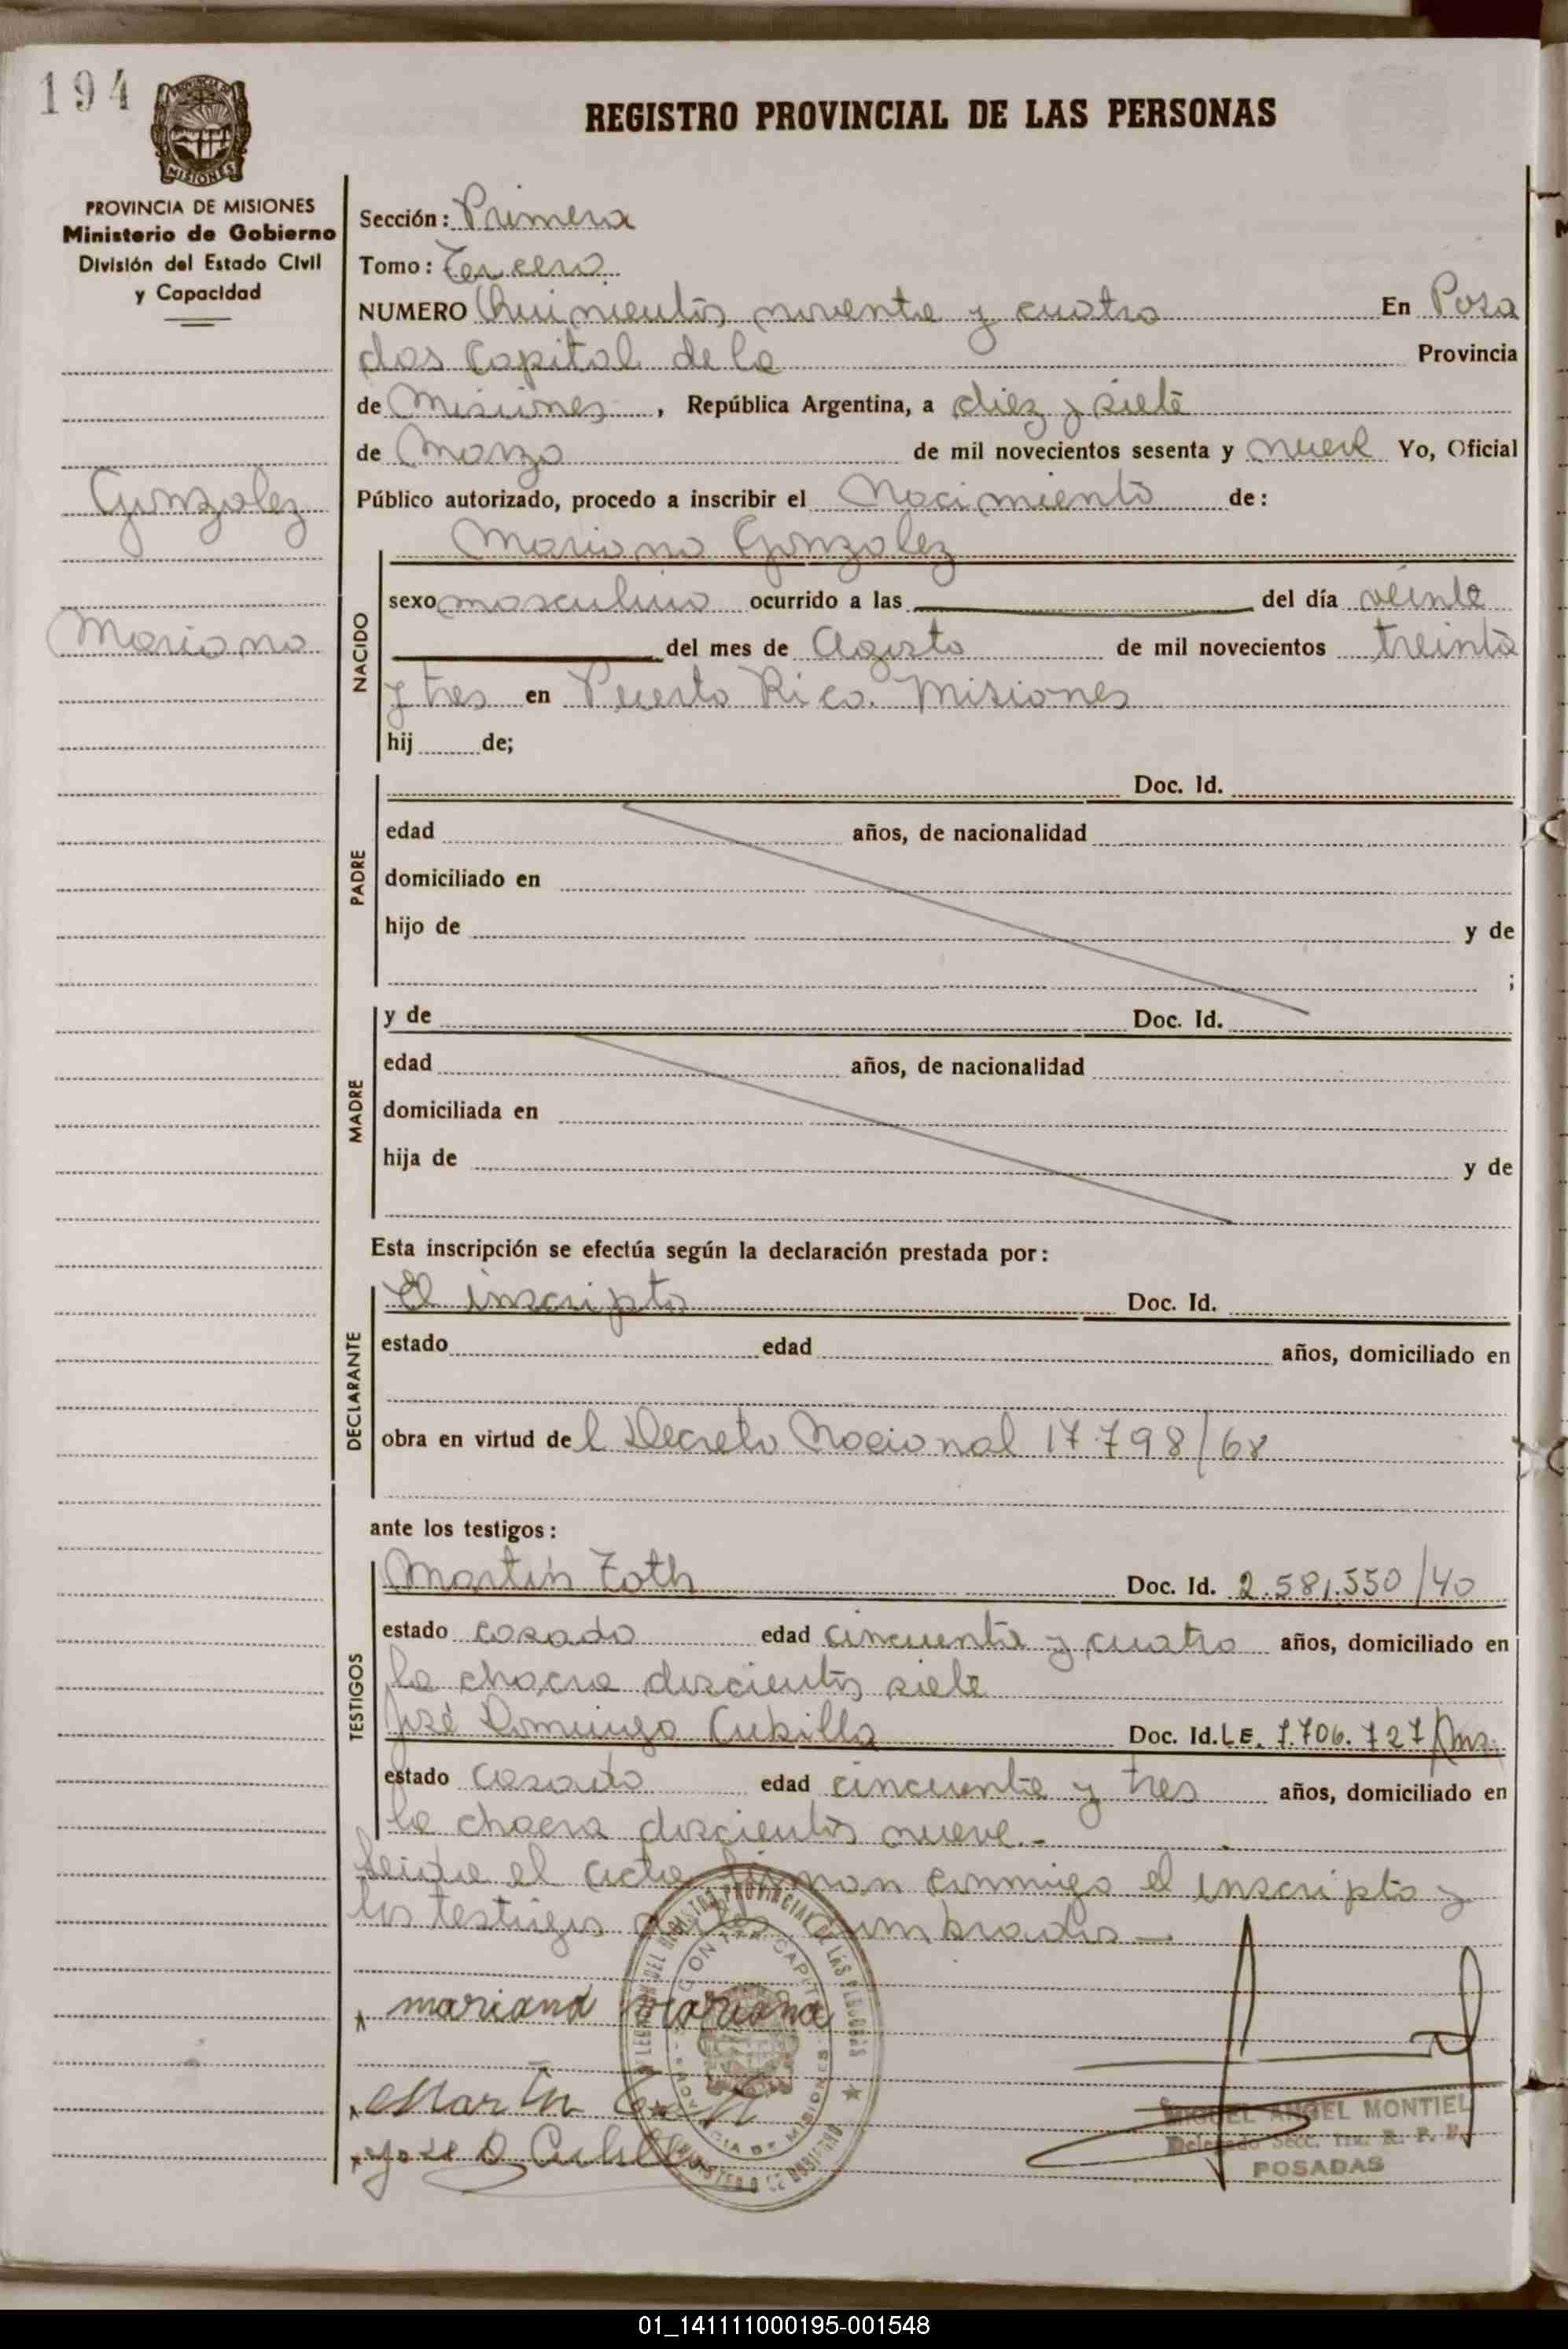 194
REGISTRO PROVINCIAL DE LAS PERSONAS
MISIONES
PROVINCIA DE MISIONES
Ministerio de Gobierno
División del Estado Civil
y Capacidad
Gonzalez
Mariano
Sección: Primera
Tomo: Tercero
NUMERO Quinientos noventa y cuatro En Posa
das Capital de la Provincia
de Misiones, República Argentina, a diez y siete
de Marzo de mil novecientos sesenta y nueve Yo, Oficial
Público autorizado, procedo a inscribir el Nacimiento de:
Mariano Gonzalez
NACIDO
sexo masculino ocurrido a las del día veinte
del mes de Agosto de mil novecientos treinta
y tres en Puerto Rico. Misiones
hij de;
PADRE
Doc. Id.
edad años, de nacionalidad
domiciliado en
hijo de y de
;
MADRE
y de Doc. Id.
edad años, de nacionalidad
domiciliada en
hija de y de
Esta inscripción se efectúa según la declaración prestada por:
DECLARANTE
El inscripto Doc. Id.
estado edad años, domiciliado en
obra en virtud del Decreto Nacional 17.798/68
ante los testigos:
TESTIGOS
Martín Toth Doc. Id. 2.581.550/40
estado casado edad cincuenta y cuatro años, domiciliado en
la chacra doscientos siete
José Domingo Cubilla Doc. Id. L.E. 1.706.727
estado casado edad cincuenta y tres años, domiciliado en
la chacra doscientos nueve.-
Leida el acta firman conmigo el inscripto y
los testigos nombrados
mariana mariana
Martin Toth
Jose D Cubilla
MIGUEL ANGEL MONTIEL
POSADAS
01_141111000195-001548